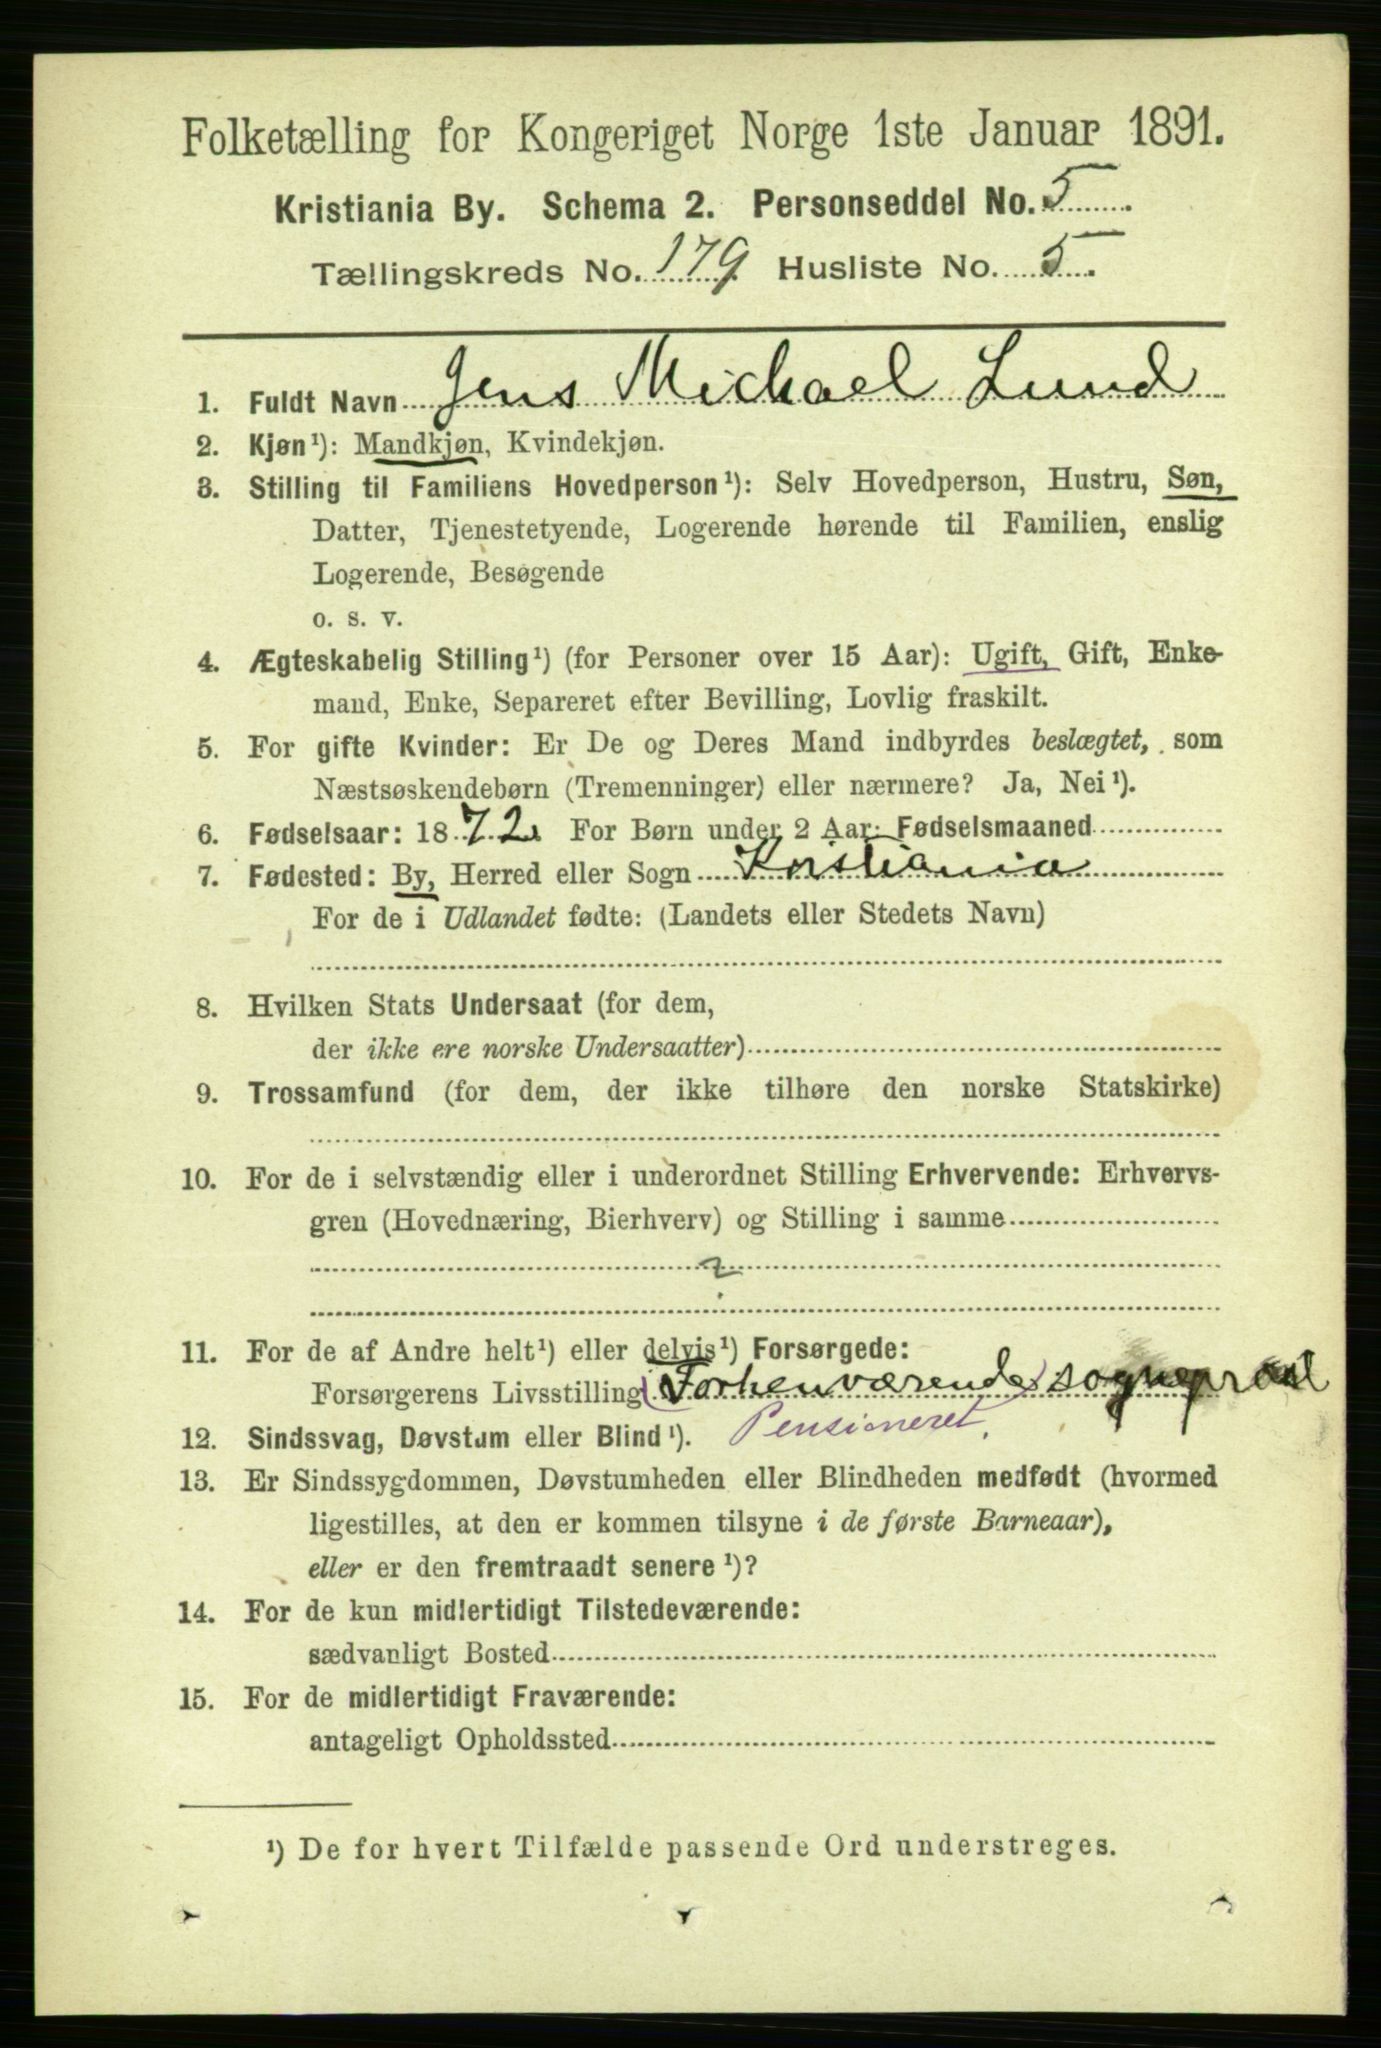 Folketælling for Kongeriget Norge 1ste Januar 1891.
Kristiania By. Schema 2. Personseddel No. 5
Tællingskreds No. 179 Husliste No. 5
1. Fuldt Navn Jens Michael Lund
2. Kjøn¹): Mandkjøn, Kvindekjøn.
3. Stilling til Familiens Hovedperson¹): Selv Hovedperson, Hustru, Søn,
Datter, Tjenestetyende, Logerende hørende til Familien, enslig
Logerende, Besøgende
o. s. v.
4. Ægteskabelig Stilling¹) (for Personer over 15 Aar): Ugift, Gift, Enke-
mand, Enke, Separeret efter Bevilling, Lovlig fraskilt.
5. For gifte Kvinder: Er De og Deres Mand indbyrdes beslægtet, som
Næstsøskendebørn (Tremenninger) eller nærmere? Ja, Nei¹).
6. Fødselsaar: 1872. For Børn under 2 Aar: Fødselsmaaned
7. Fødested: By, Herred eller Sogn Kristiania
For de i Udlandet fødte: (Landets eller Stedets Navn)
8. Hvilken Stats Undersaat (for dem,
der ikke ere norske Undersaatter)
9. Trossamfund (for dem, der ikke tilhøre den norske Statskirke)
10. For de i selvstændig eller i underordnet Stilling Erhvervende: Erhvervs-
gren (Hovednæring, Bierhverv) og Stilling i samme
11. For de af Andre helt¹) eller delvis¹) Forsørgede:
Forsørgerens Livsstilling (Forhenværende) sogneprest
Pensioneret.
12. Sindssvag, Døvstum eller Blind¹).
13. Er Sindssygdommen, Døvstumheden eller Blindheden medfødt (hvormed
ligestilles, at den er kommen tilsyne i de første Barneaar),
eller er den fremtraadt senere¹)?
14. For de kun midlertidigt Tilstedeværende:
sædvanligt Bosted
15. For de midlertidigt Fraværende:
antageligt Opholdssted
¹) De for hvert Tilfælde passende Ord understreges.